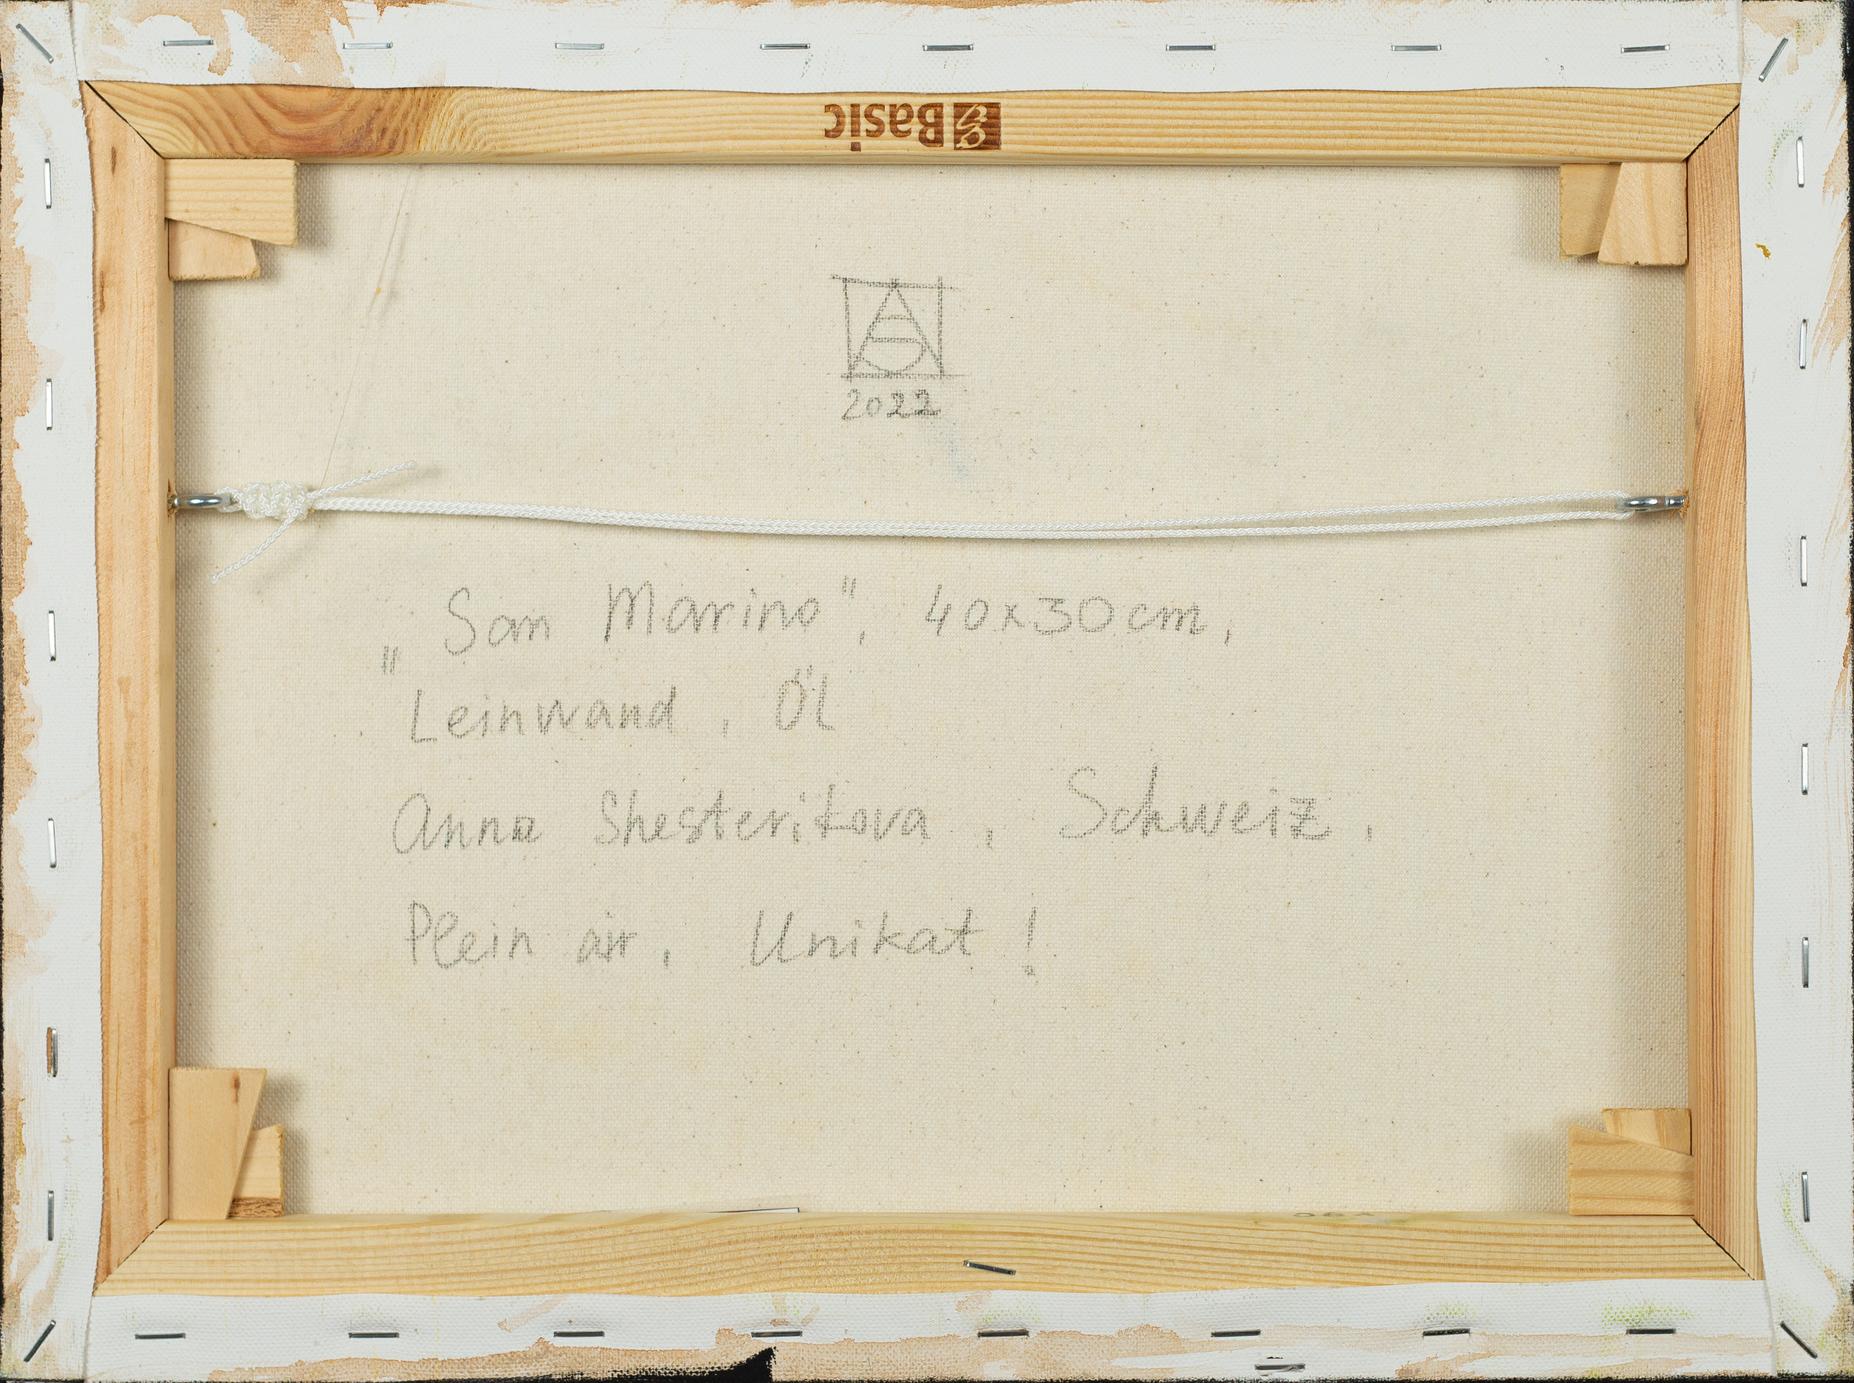 Basic
2022
„San Marino", 40x30cm,
Leinwand, Öl
Anna Shesterikova, Schweiz.
Plein air, Unikat!